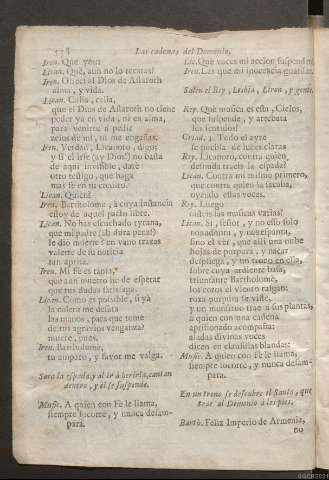 Las cadenas del Demonio,
Iren. Que yo
Lican. Què, aun no lo recatas?
Iren. Ofrecì al Dios de Astaroth
alma, y vida.
Lican. Calla, calla,
que el Dios de Astaroth no tiene
poder ya en vida, ni en alma,
para venirte à pedir
zelos de mi, tu me engañas.
Iren. Verdad, Licanoro, digo;
y si el irse (ay Dios!) no basta
de aqui invisible, darè
otro testigo, que haga
mas fè en su credito.
Lican. Quien?
Iren. Bartholomè, à cuya instancia
estoy de aquel pacto libre.
Lican. No has escuchado tyrana,
que mi padre (ha dura pena!)
le diò muerte? en vano trazas
valerte de su noticia
tan aprisa.
Iren. Mi Fè es tanta,
que aun muerto he de esperar
que tus dudas satisfaga.
Lican. Como es posible, si yà
la colera me desata
las manos, para que tome
de tus agravios venganza?
muere, pues.
Iren. Bartholomè,
tu amparo, y favor me valga.
Saca la espada, y al ir à herirla, cantan
dentro, y èl se suspende.
Music. A quien con Fè le llama,
siempre socorre, y nunca desam-
para.
Lic. Què voces mi accion suspenden?
Iren. Las que mi inocencia guardan.
Salen el Rey, Lesbia, Ciron, y gente.
Rey. Què musica es esta, Cielos,
que suspende, y arrebata
los sentidos?
Todo el ayre
se puebla de luces claras
Rey. Licanoro, contra quièn,
desnuda traeis la espada?
Lican. Contra mi mismo primero,
que contra quien la sacaba,
oyendo essas voces.
Rey. Luego
oisteis las musicas varias?
Lican. Si, señor, y no esso solo
nos admira, y nos espanta,
sino el vèr, que alli una nube
hojas de purpura, y nacar
despliega, y un trono en ella,
sobre cuya ardiente basa,
triunfante Bartholomè,
los coros el viento rasgan:
roxa purpura se viste,
y un monstruo trae à sus plantas,
à quien con una cadena
aprisionado acompaña:
a cuyas divinas voces
dicen en clausulas blandas:
Music. A quien con Fè le llama,
siempre socorre, y nunca desam-
para.
En un trono se descubre el Santo, que
trae al Demonio à los pies.
Bartò. Feliz Imperio de Armenia,
no